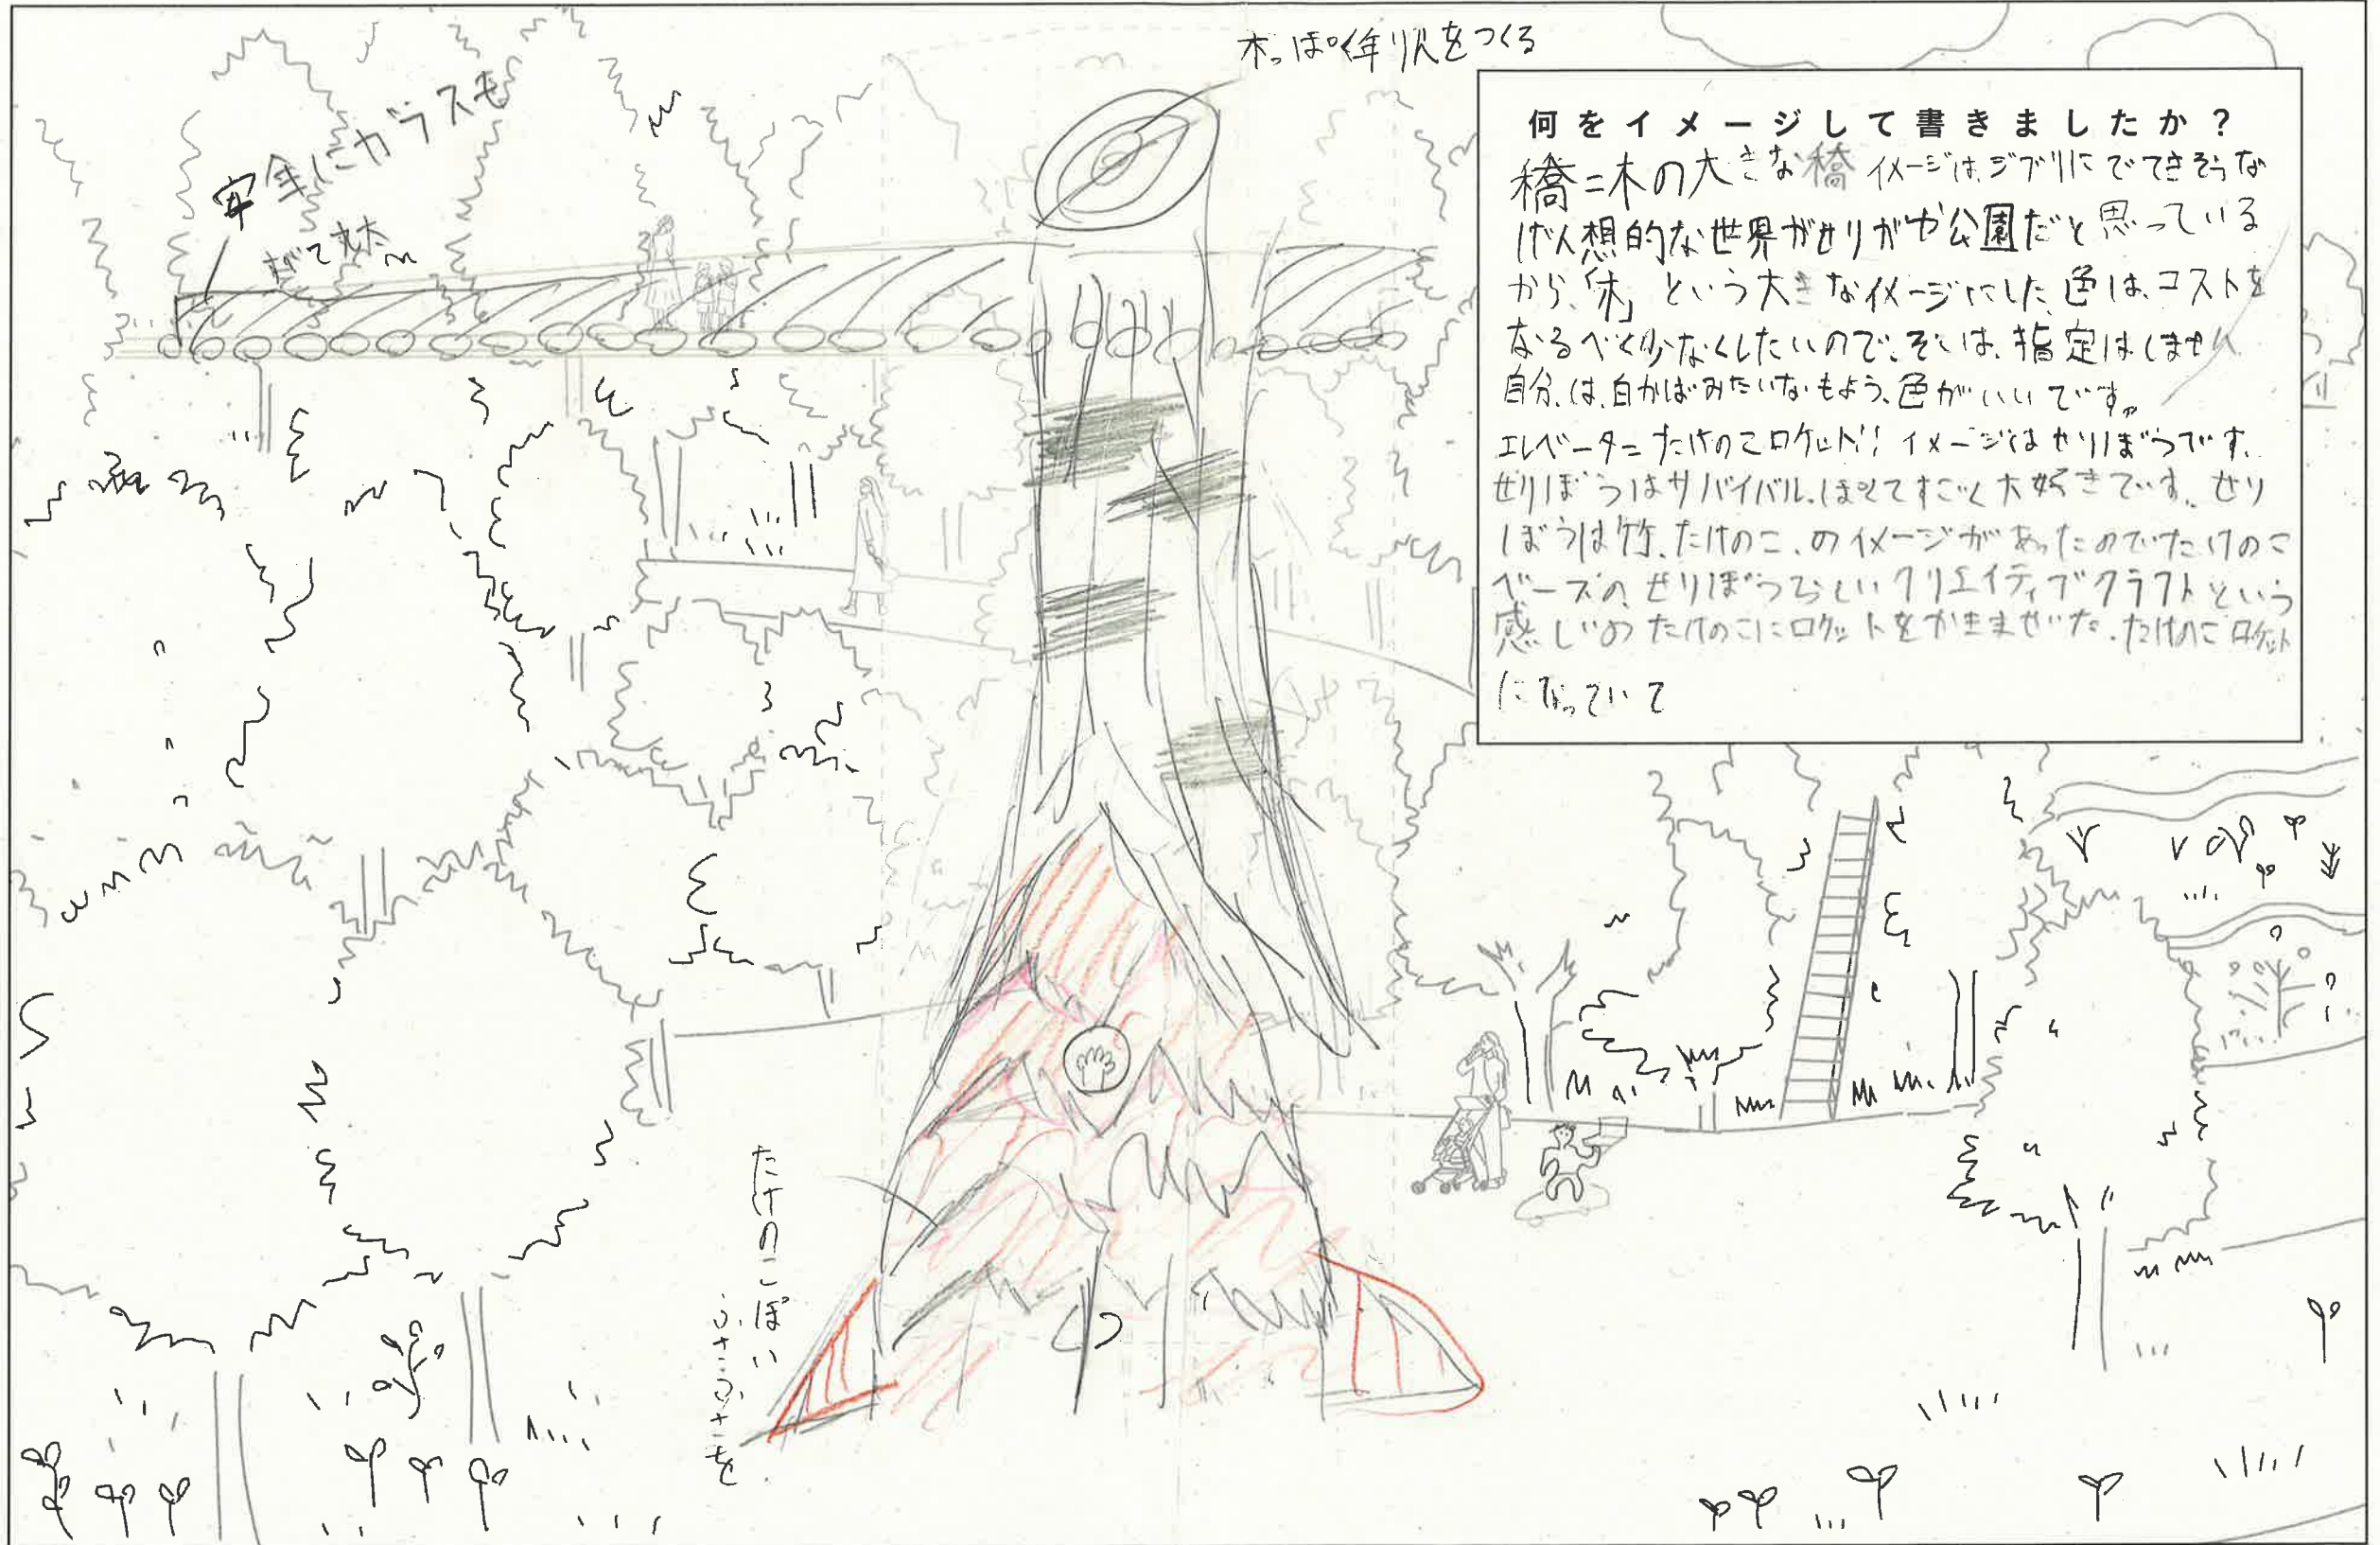 木っぽく年りんをつくる
安全にガラスも
何をイメージして書きましたか？
橋=木の大きな橋 イメージは、ジブリにでてきそうな
げん想的な世界がせりがや公園だと思っている
から、「木」という大きなイメージにした。色は、コストを
なるべく少なくしたいので、そいは、指定はしません
自分は、白かばみたいなもよう、色がいいです。
エレベーター=たけのこロケット!! イメージはせりぼうです。
せりぼうはサバイバルっぽくてすごく大好きです。せり
ぼうは竹、たけのこ、のイメージがあったのでたけのこ
ベースの、せりぼうらしいクリエイティブクラフトという
感じのたけのこにロケットをかきまぜた、たけのこロケット
になっていて
たけのこっぽい